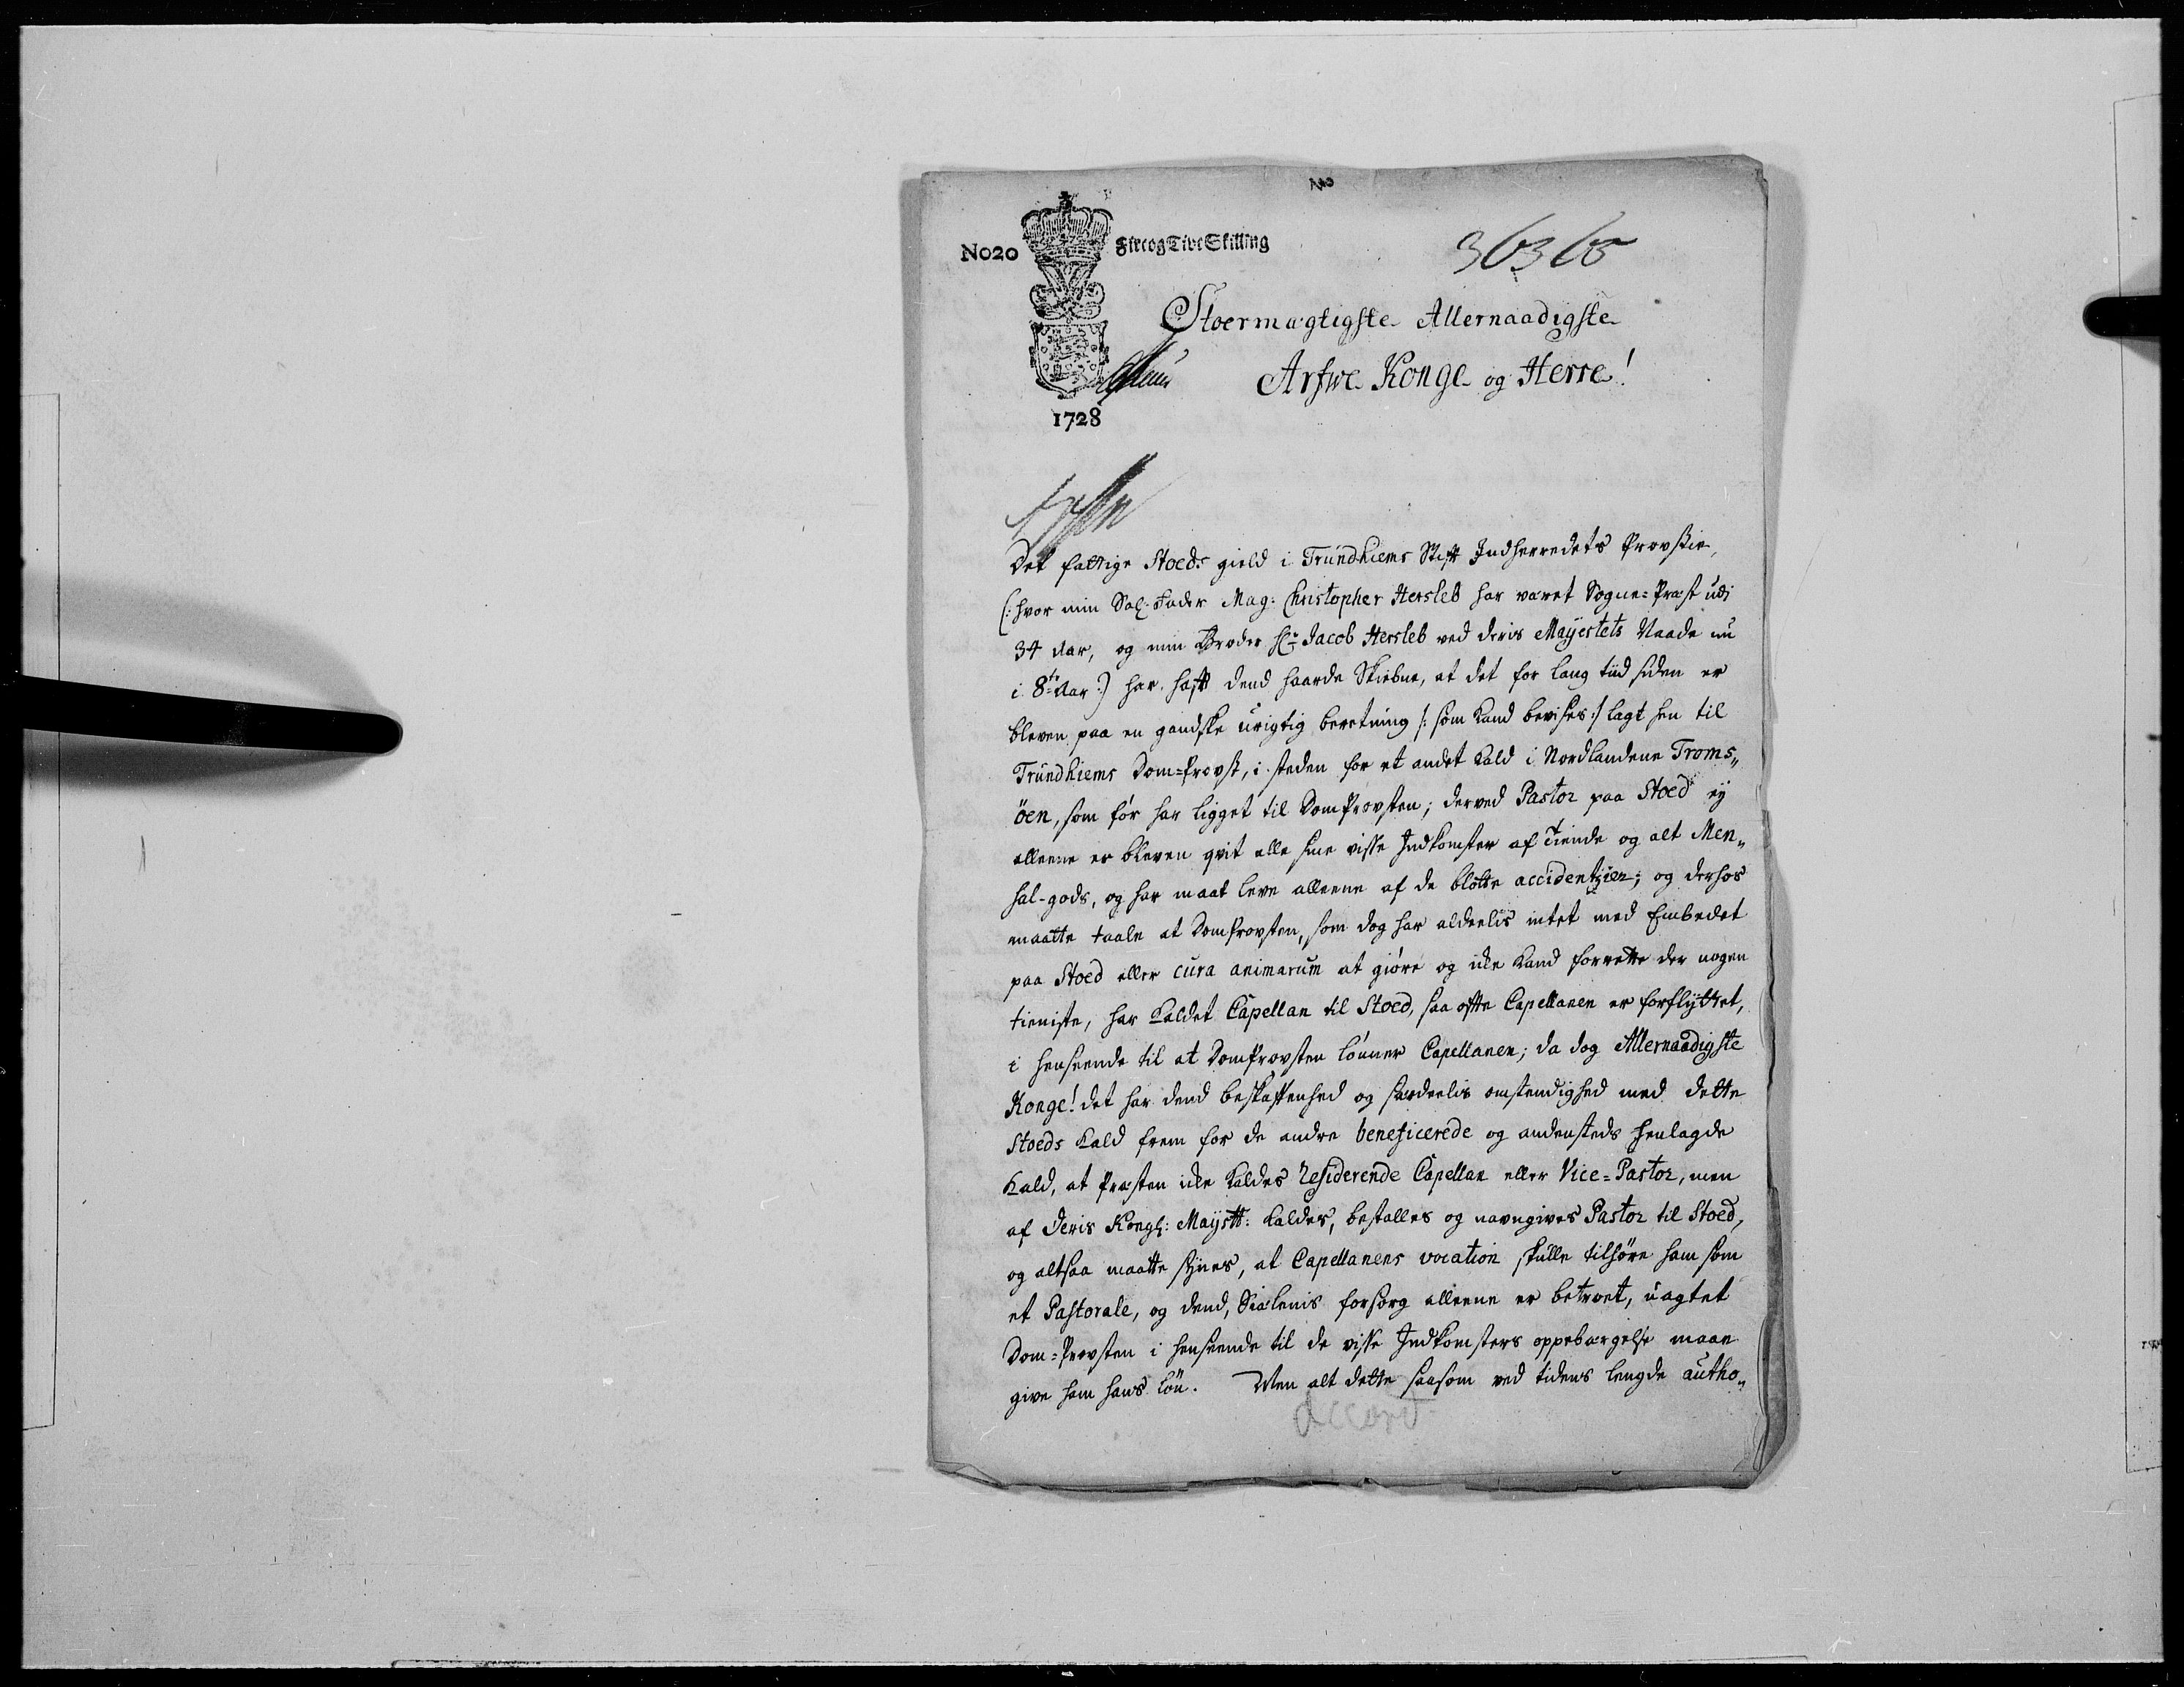 No20
Fire og Tive Skilling
Stoermægtigste Allernaadigste
Arfwe Konge og Herre!
1728
Det fattige Stoeds gield i Trundhiems Stift Indherredets Provstie,
(: hvor min Sal: Fader Mag: Christopher Hersleb har været Sogne=Præst udi
34 Aar, og min Broder Hr Jacob Hersleb ved deris Mayestets Naade nu
i 8te Aar :) har haft dend haarde Skiebne, at det for lang tiid siden er
bleven paa en gandske urigtig beretning /: som kand bevises :/ lagt hen til
Trundhiems Dom=Provst, i steden for et andet Kald i Nordlandene Troms„
öen, som før har ligget til DomProvsten; derved Pastor paa Stoed ey
alleene er bleven qvit alle sine visse Indkomster af Tiende og alt Men„
sal-gods, og har maat leve alleene af de blotte accidentzier; og derhos
maatte taale at DomProvsten, som dog har aldeelis intet med Embedet
paa Stoed eller cura animarum at giøre og icke kand forrette der nogen
tieniste, har kaldet Capellan til Stoed, saa ofte Capellanen er forflyttet,
i henseende til at DomProvsten lønner Capellanen; da dog Allernaadigste
Konge! det har dend beskaffenhed og særdeelis omstendighed med dette
Stoeds Kald frem for de andre beneficerede og andensteds henlagde
Kald, at Præsten icke kaldes Residerende Capellan eller Vice=Pastor, men
af Deris Kongl: Maystt: kaldes, bestalles og navngives Pastor til Stoed,
og altsaa maatte synes, at Capellanens vocation skulle tilhøre ham som
et Pastorale, og dend, Siælenis forsorg alleene er betroet, uagtet
Dom=Provsten i henseende til de visse Indkomsters oppebærgelse maae
give ham hans løn. Men alt dette saasom ved tidens lengde autho„
accord